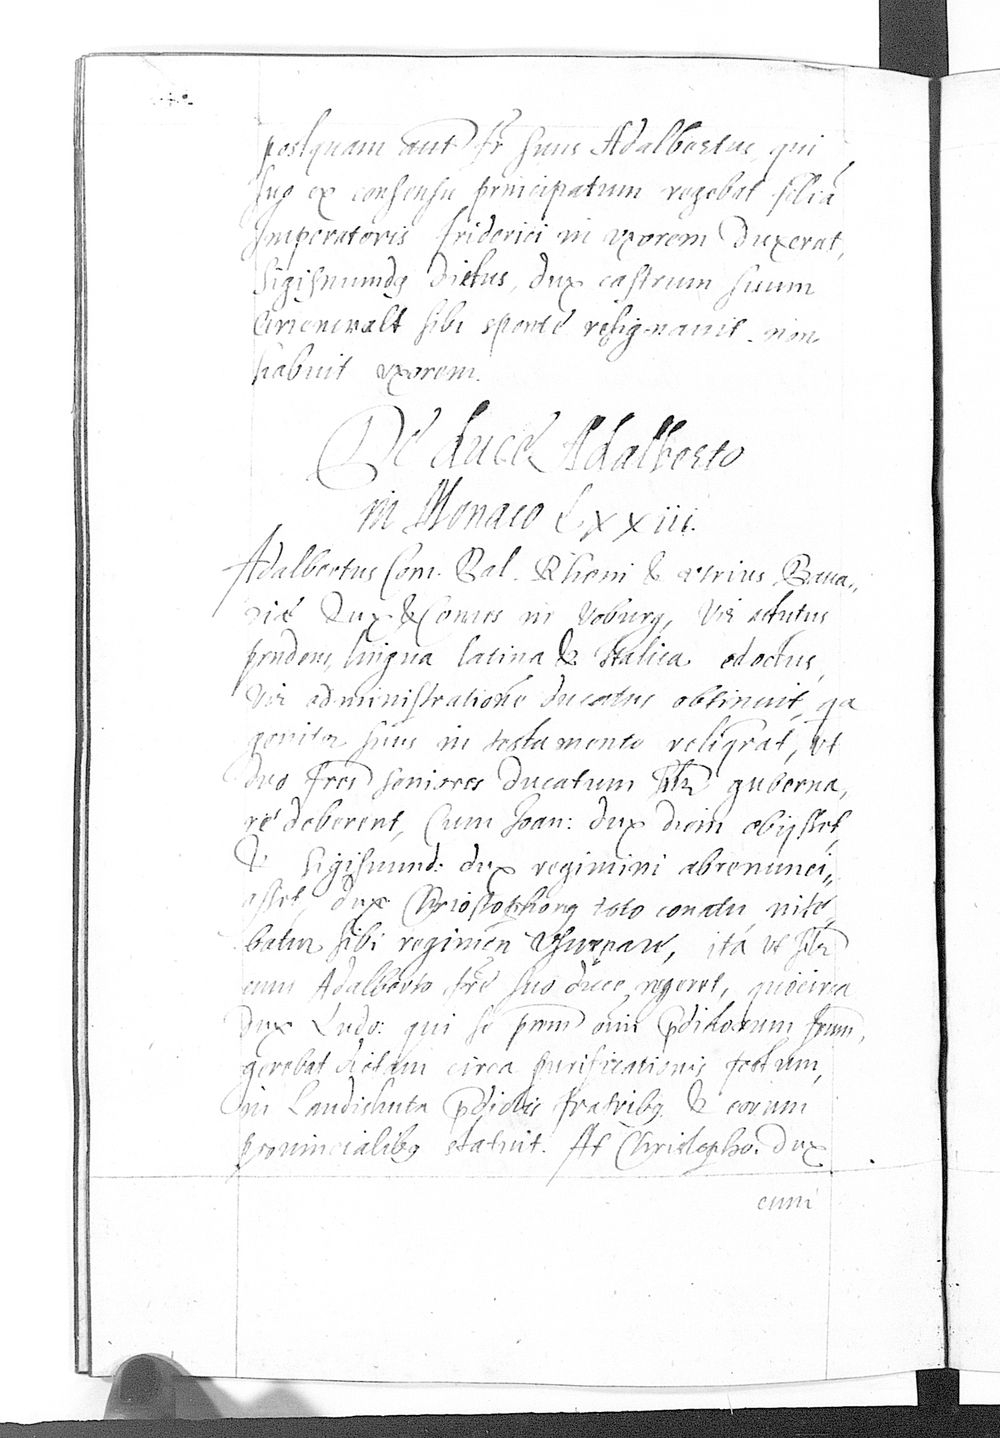 postquam aut fr suus Adalbertus, qui
suo ex consensu principatum regebat filiā
Imperatoris friderici in vxorem Duxerat,
Sigismundq Dictus, dux castrum suum
Grienewalt sibi sponte resignauit. non
habuit vxorem.
De duce Adalberto
in Monaco LXXIII.
Adalbertus Com. Pal. Rheni & vtrius Baua„
riæ Dux & Comes in Voburg, Vir astutus
prudens, lingua latina & Italica edoctus,
Vir administratione ducatus obtinuit, qa
genitor suus in testamento reliqrat, vt
duo fres seniores ducatum sīlr guberna,
re deberent, Cum Joan: dux diem obijsset,
& Sigismund: dux regimini abrenunci„
asset, dux Christophorq toto conatu nite
batur sibi regimen Vsurpare, ita vt sīlr
cum Adalberto fre suo duce regeret, quocirca
dux Ludo: qui se prom oīm pdictorum frum,
gerebat dietam circa purificationis festum,
in Landishuta pdictis fratribq & eorum
prouincialibq statuit. At Christopho: dux
cum